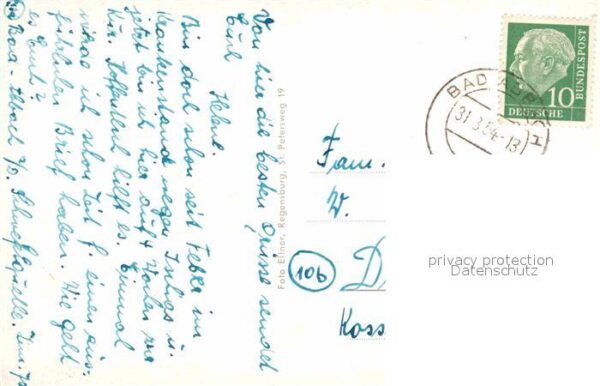 Von hier die besten Grüsse sendet
Euch
Helene.
Bin doch schon seit Febr. im
Krankenstand wegen Ischias u.
jetzt bin ich hier auf 4 Wochen zur
Kur. Hoffentlich hilft es. Einmal
muss ich schon Zeit f. einen aus-
führlichen Brief haben. Wie geht
es Euch?
Bad-Abbach
Foto Ettner, Regensburg, St. Petersweg 19
Fam.
W.
(10b)
D
Koss
BAD ABBACH
31.3.54.-13
DEUTSCHE
BUNDESPOST
10
privacy protection
Datenschutz